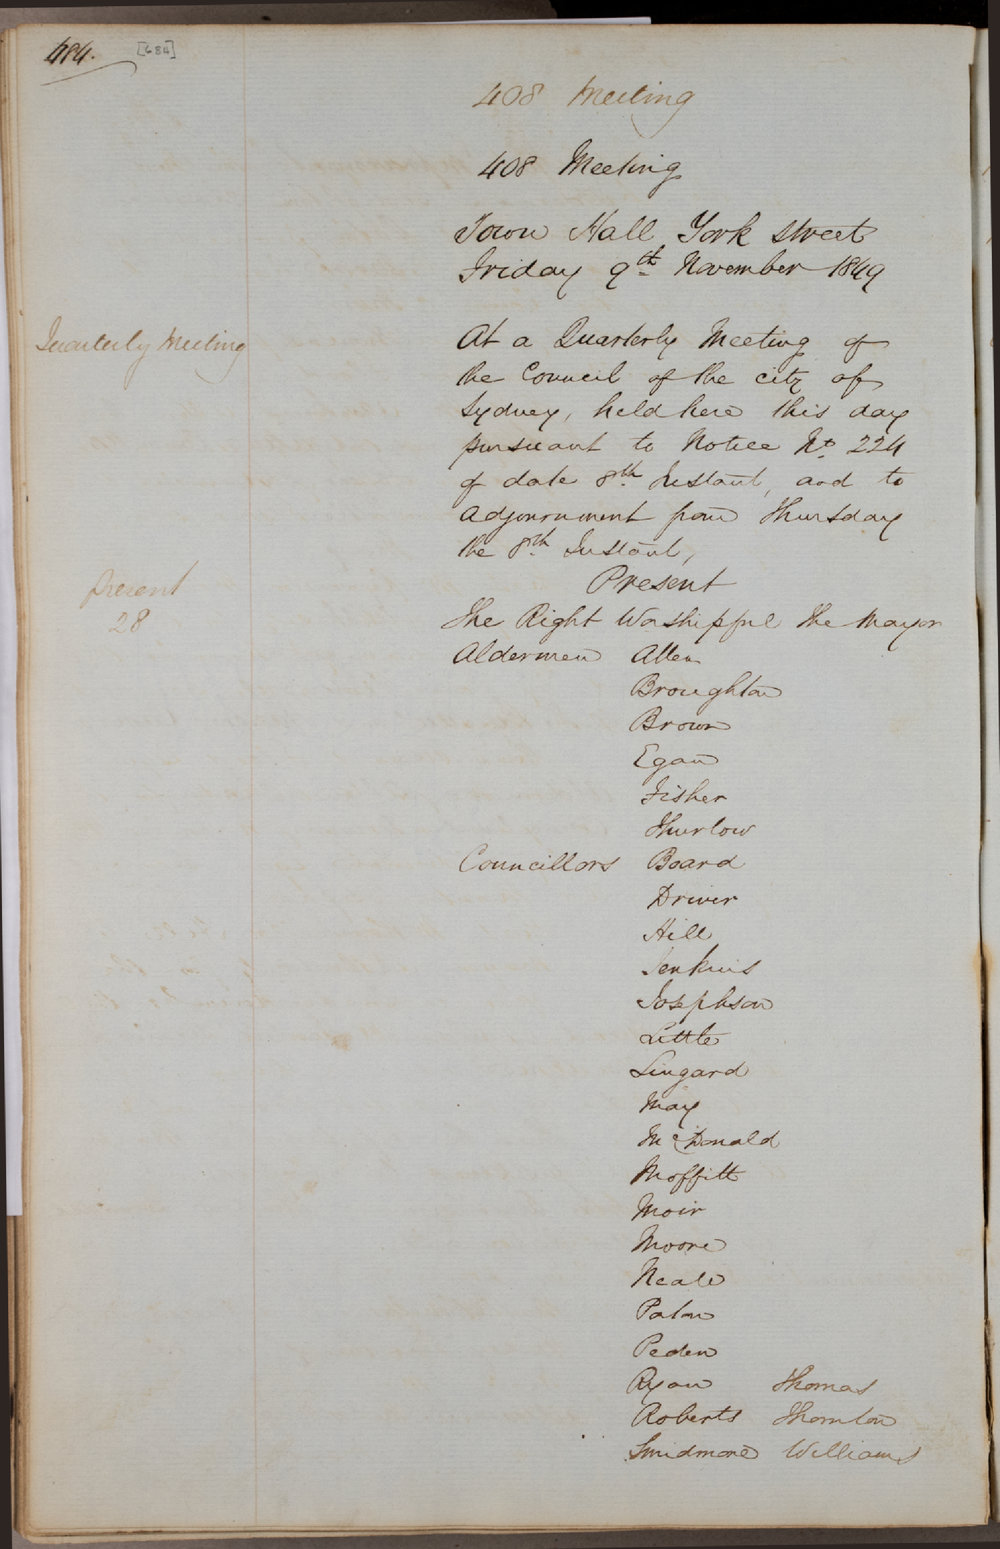 484.
[684]
408 Meeting
408 Meeting
Town Hall York street
Friday 9th November 1849
Quarterly Meeting
At a Quarterly Meeting of
the Council of the city of
Sydney, held here this day
pursuant to Notice No. 224
of date 8th Instant, and to
adjournment from Thursday
the 8th Instant,
Present
28
Present
The Right Worshipful The Mayor
Aldermen Allen
Broughton
Brown
Egan
Fisher
Thurlow
Councillors Board
Driver
Hill
Jenkins
Josephson
Little
Lingard
May
McDonald
Moffitt
Moir
Moore
Neale
Paton
Peden
Ryan Thomas
Roberts Thornton
Smidmore Williams